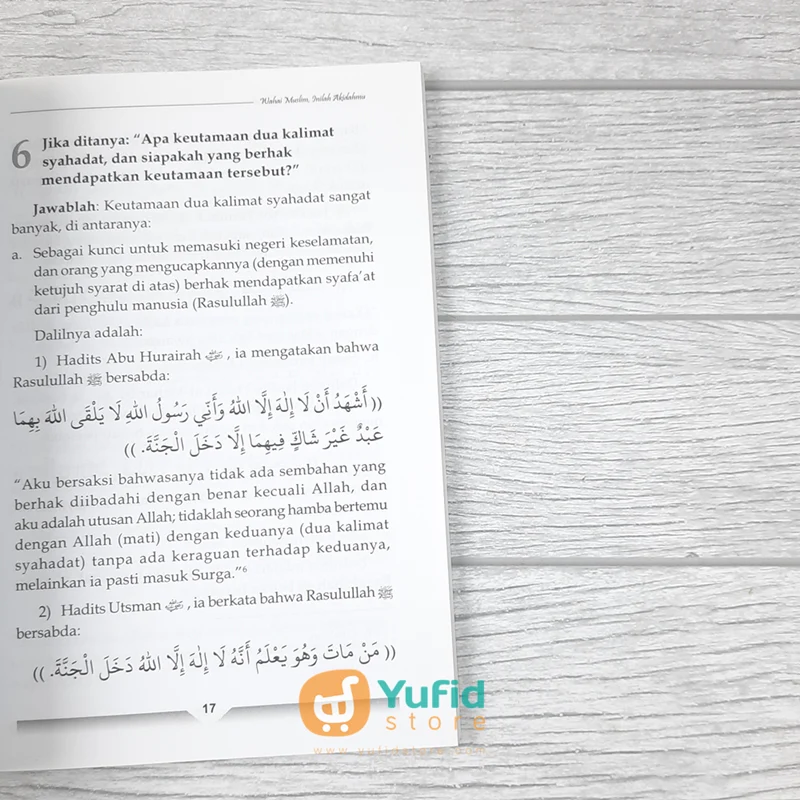 Wahai Muslim, Inilah Akidahmu
6 Jika ditanya: “Apa keutamaan dua kalimat
syahadat, dan siapakah yang berhak
mendapatkan keutamaan tersebut?”
Jawablah: Keutamaan dua kalimat syahadat sangat
banyak, di antaranya:
a. Sebagai kunci untuk memasuki negeri keselamatan,
dan orang yang mengucapkannya (dengan memenuhi
ketujuh syarat di atas) berhak mendapatkan syafa’at
dari penghulu manusia (Rasulullah ﷺ).
Dalilnya adalah:
1) Hadits Abu Hurairah , ia mengatakan bahwa
Rasulullah ﷺ bersabda:
(( أَشْهَدُ أَنْ لَا إِلٰهَ إِلَّا اللهُ وَأَنِّي رَسُولُ اللهِ لَا يَلْقَى اللهَ بِهِمَا
عَبْدٌ غَيْرَ شَاكٍّ فِيهِمَا إِلَّا دَخَلَ الْجَنَّةَ. ))
“Aku bersaksi bahwasanya tidak ada sembahan yang
berhak diibadahi dengan benar kecuali Allah, dan
aku adalah utusan Allah; tidaklah seorang hamba bertemu
dengan Allah (mati) dengan keduanya (dua kalimat
syahadat) tanpa ada keraguan terhadap keduanya,
melainkan ia pasti masuk Surga.”⁶
2) Hadits Utsman , ia berkata bahwa Rasulullah ﷺ
bersabda:
(( مَنْ مَاتَ وَهُوَ يَعْلَمُ أَنَّهُ لَا إِلٰهَ إِلَّا اللهُ دَخَلَ الْجَنَّةَ. ))
17
Yufid
store